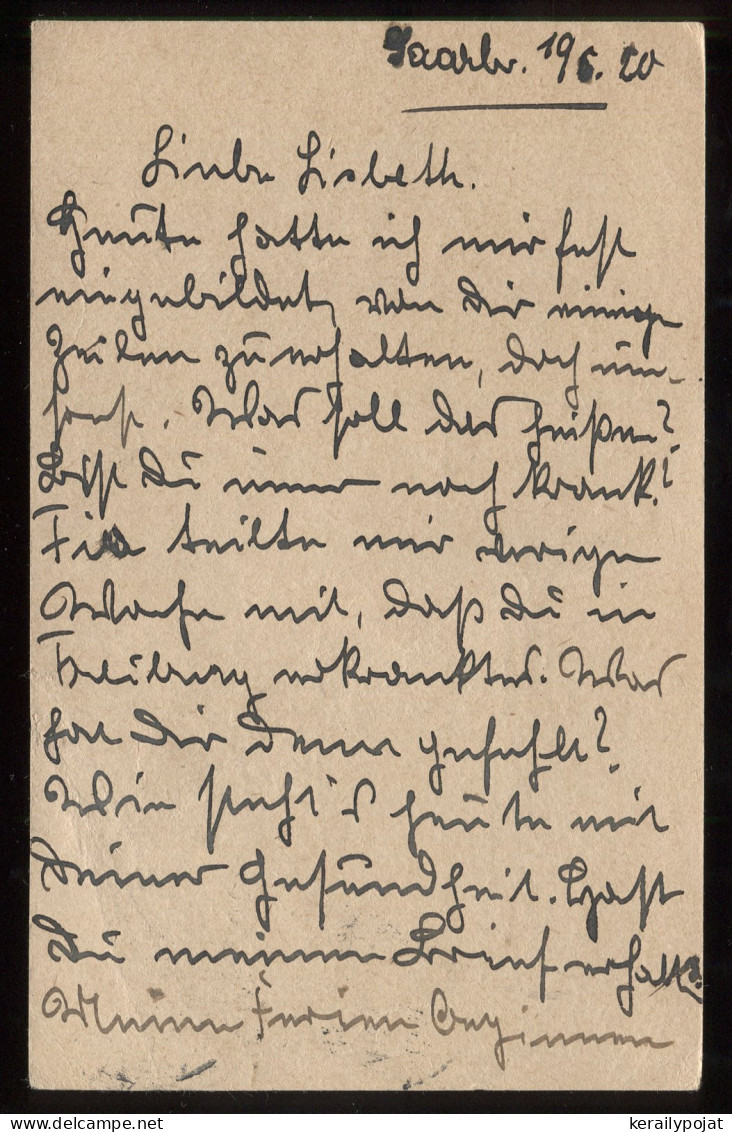 Saarbr. 19.6.20
Liebe Lisbeth.
Heute hatte ich mir fest
eingebildet, von dir einige
Zeilen zu erhalten, doch um-
sonst. Was soll das heißen?
Bist du immer noch krank?
teilte mir vorige
Woche mit, daß du in
Freiburg erkranktest. Was
hat dir denn gefehlt?
Wie steht's heute mit
deiner Gesundheit. Hast
du meinen Brief erhalt?
Meine Ferien beginnen
kerailypojat